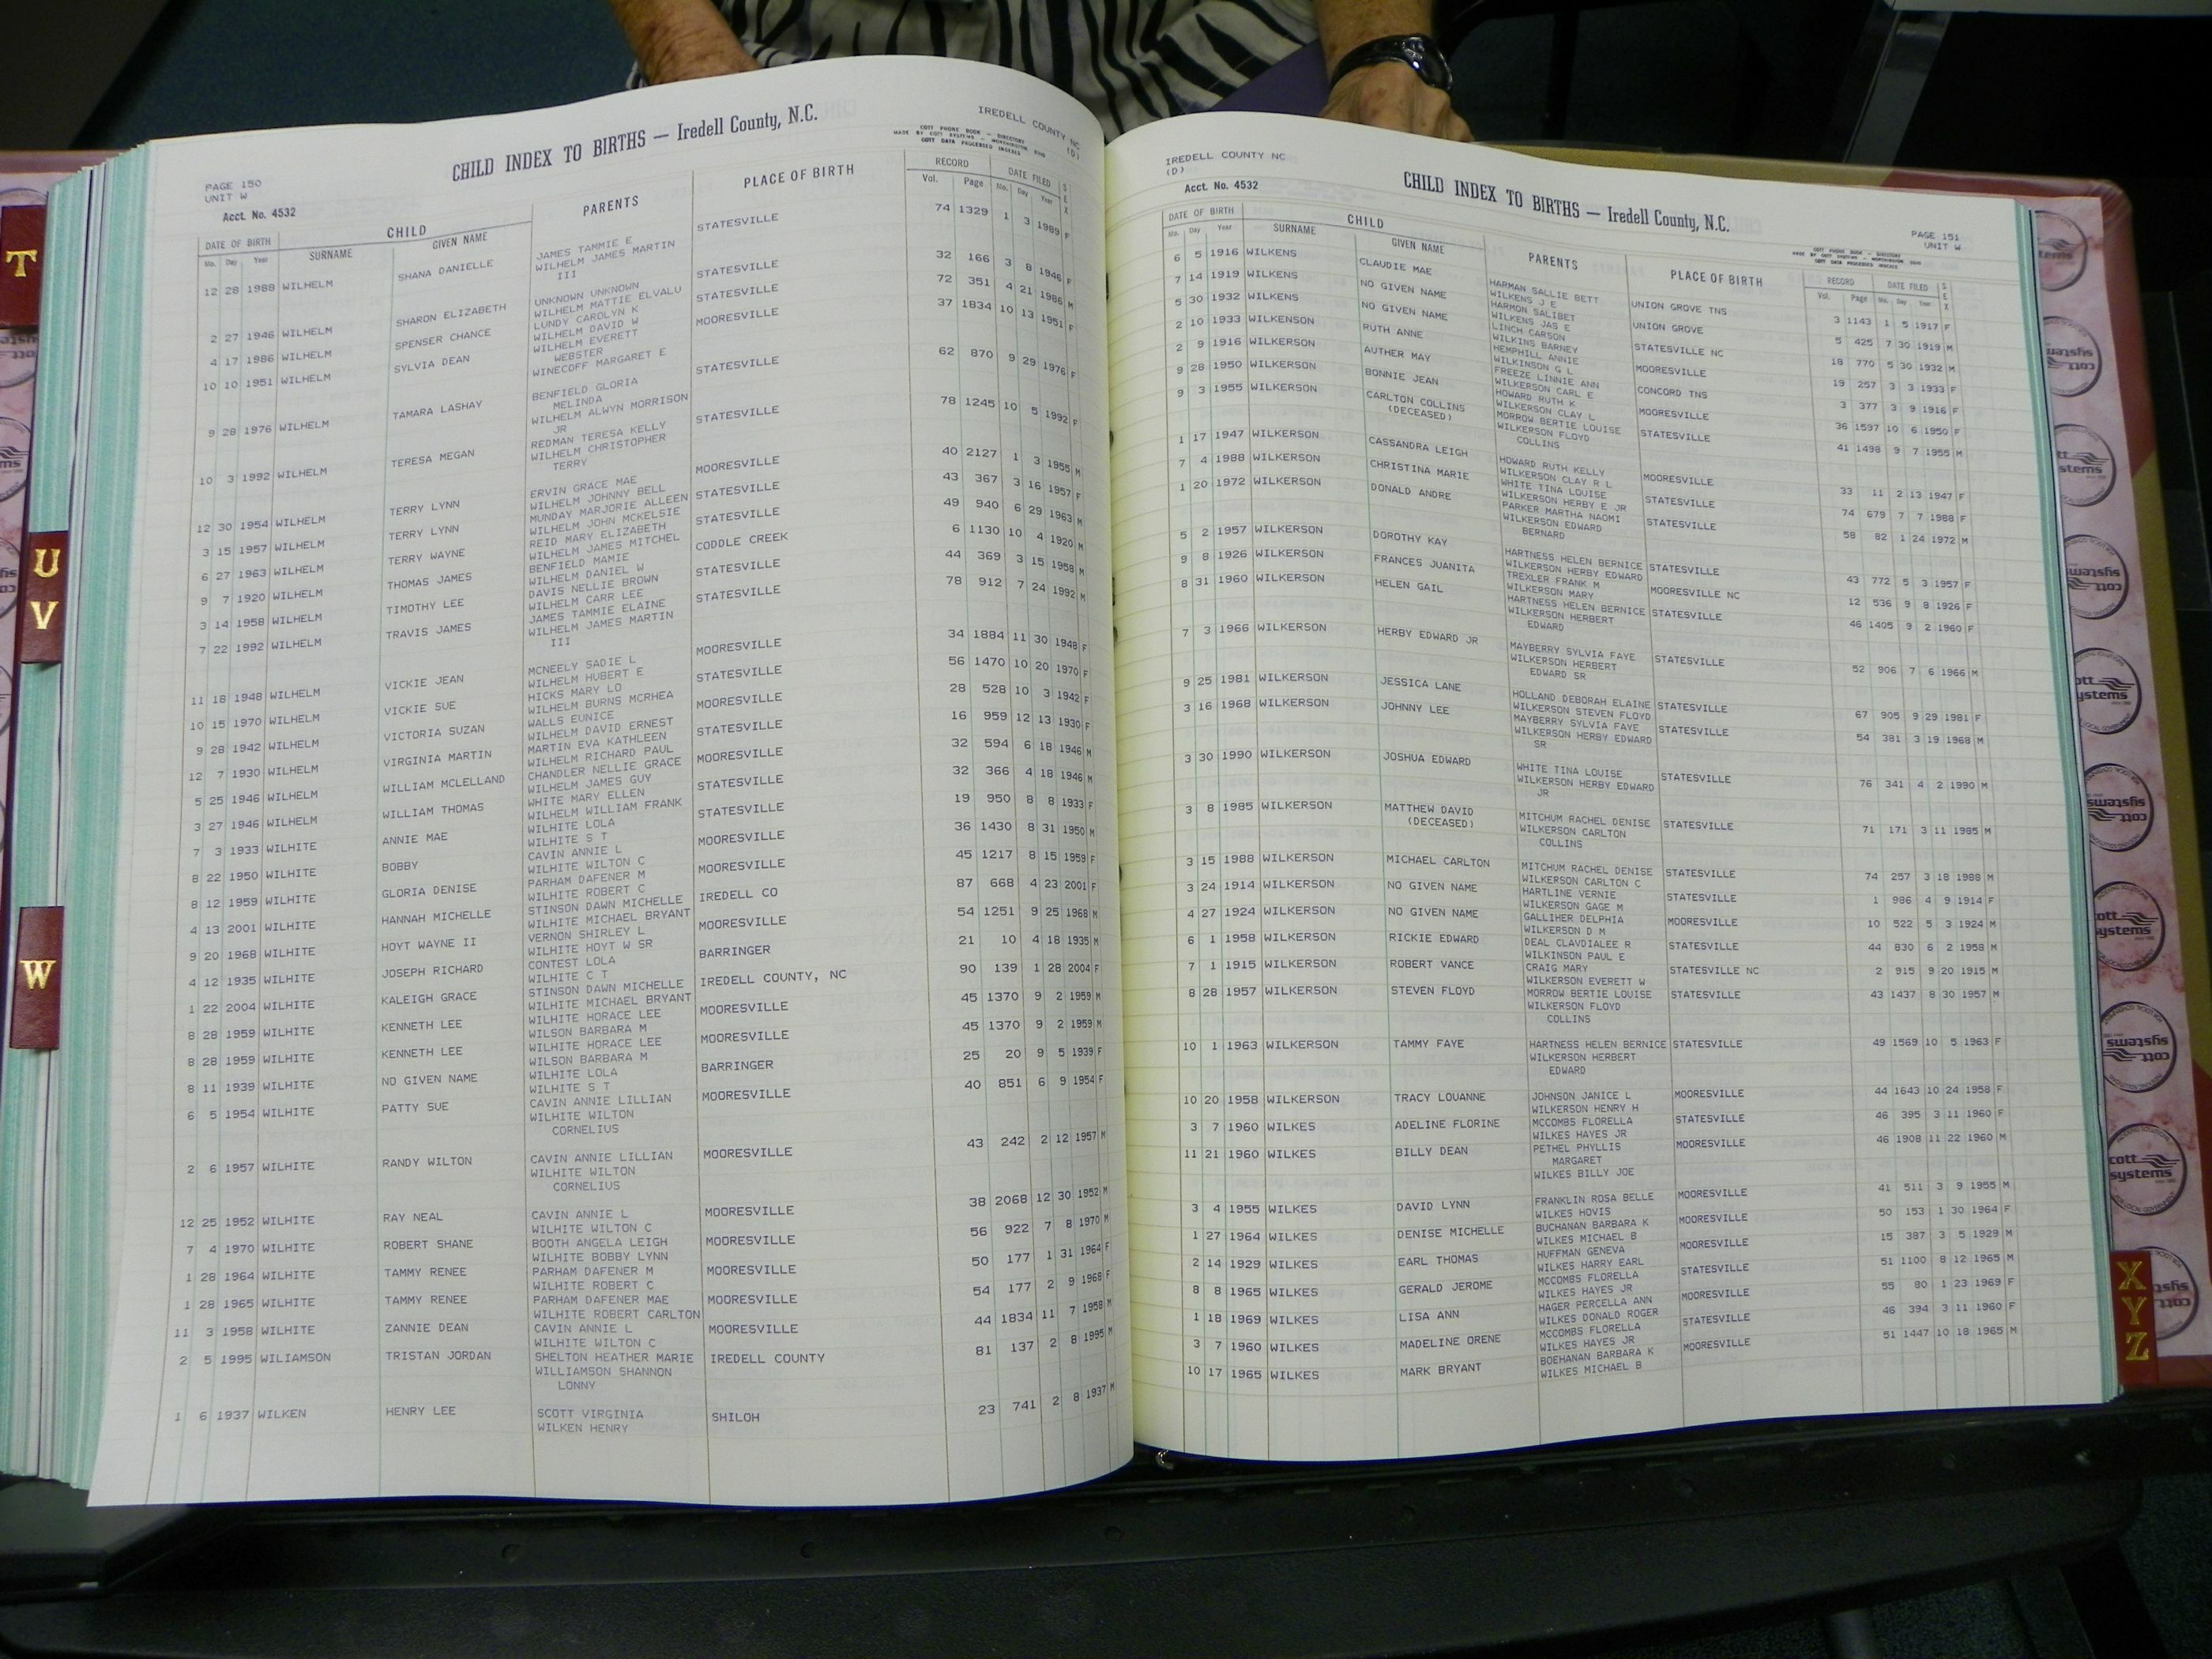 PAGE 150
UNIT W
Acct. No. 4532
CHILD INDEX TO BIRTHS — Iredell County, N.C.
IREDELL COUNTY NC
(D)
COTT PHONE BOOK - DIRECTORY
MADE BY COTT SYSTEMS - WORTHINGTON OHIO
COTT DATA PROCESSED INDEXES
DATE OF BIRTH CHILD PARENTS PLACE OF BIRTH RECORD DATE FILED SEX
Mo. Day Year SURNAME GIVEN NAME Vol. Page Mo. Day Year
12 28 1988 WILHELM SHANA DANIELLE JAMES TAMMIE E STATESVILLE 74 1329 1 3 1989 F
WILHELM JAMES MARTIN
III
2 27 1946 WILHELM SHARON ELIZABETH UNKNOWN UNKNOWN STATESVILLE 32 166 3 8 1946 F
WILHELM MATTIE ELVALU
4 17 1986 WILHELM SPENSER CHANCE LUNDY CAROLYN K STATESVILLE 72 351 4 21 1986 M
WILHELM DAVID W
10 10 1951 WILHELM SYLVIA DEAN WILHELM EVERETT MOORESVILLE 37 1834 10 13 1951 F
WEBSTER
WINECOFF MARGARET E
9 28 1976 WILHELM TAMARA LASHAY BENFIELD GLORIA STATESVILLE 62 870 9 29 1976 F
MELINDA
WILHELM ALWYN MORRISON
JR
10 3 1992 WILHELM TERESA MEGAN REDMAN TERESA KELLY STATESVILLE 78 1245 10 5 1992 F
WILHELM CHRISTOPHER
TERRY
12 30 1954 WILHELM TERRY LYNN ERVIN GRACE MAE MOORESVILLE 40 2127 1 3 1955 M
WILHELM JOHNNY BELL
3 15 1957 WILHELM TERRY LYNN MUNDAY MARJORIE ALLEEN STATESVILLE 43 367 3 16 1957 F
WILHELM JOHN MCKELSIE
6 27 1963 WILHELM TERRY WAYNE REID MARY ELIZABETH STATESVILLE 49 940 6 29 1963 M
WILHELM JAMES MITCHEL
9 7 1920 WILHELM THOMAS JAMES BENFIELD MAMIE CODDLE CREEK 6 1130 10 4 1920 M
WILHELM DANIEL W
3 14 1958 WILHELM TIMOTHY LEE DAVIS NELLIE BROWN STATESVILLE 44 369 3 15 1958 M
WILHELM CARR LEE
7 22 1992 WILHELM TRAVIS JAMES JAMES TAMMIE ELAINE STATESVILLE 78 912 7 24 1992 M
WILHELM JAMES MARTIN
III
11 18 1948 WILHELM VICKIE JEAN MCNEELY SADIE L MOORESVILLE 34 1884 11 30 1948 F
WILHELM HUBERT E
10 15 1970 WILHELM VICKIE SUE HICKS MARY LO STATESVILLE 56 1470 10 20 1970 F
WILHELM BURNS MCRHEA
9 28 1942 WILHELM VICTORIA SUZAN WALLS EUNICE MOORESVILLE 28 528 10 3 1942 F
WILHELM DAVID ERNEST
12 7 1930 WILHELM VIRGINIA MARTIN MARTIN EVA KATHLEEN STATESVILLE 16 959 12 13 1930 F
WILHELM RICHARD PAUL
5 25 1946 WILHELM WILLIAM MCLELLAND CHANDLER NELLIE GRACE MOORESVILLE 32 594 6 18 1946 M
WILHELM JAMES GUY
3 27 1946 WILHELM WILLIAM THOMAS WHITE MARY ELLEN STATESVILLE 32 366 4 18 1946 M
WILHELM WILLIAM FRANK
7 3 1933 WILHITE ANNIE MAE WILHITE LOLA STATESVILLE 19 950 8 8 1933 F
WILHITE S T
8 22 1950 WILHITE BOBBY CAVIN ANNIE L MOORESVILLE 36 1430 8 31 1950 M
WILHITE WILTON C
8 12 1959 WILHITE GLORIA DENISE PARHAM DAFENER M MOORESVILLE 45 1217 8 15 1959 F
WILHITE ROBERT C
4 13 2001 WILHITE HANNAH MICHELLE STINSON DAWN MICHELLE IREDELL CO 87 668 4 23 2001 F
WILHITE MICHAEL BRYANT
9 20 1968 WILHITE HOYT WAYNE II VERNON SHIRLEY L MOORESVILLE 54 1251 9 25 1968 M
WILHITE HOYT W SR
4 12 1935 WILHITE JOSEPH RICHARD CONTEST LOLA BARRINGER 21 10 4 18 1935 M
WILHITE C T
1 22 2004 WILHITE KALEIGH GRACE STINSON DAWN MICHELLE IREDELL COUNTY, NC 90 139 1 28 2004 F
WILHITE MICHAEL BRYANT
8 28 1959 WILHITE KENNETH LEE WILHITE HORACE LEE MOORESVILLE 45 1370 9 2 1959 M
WILSON BARBARA M
8 28 1959 WILHITE KENNETH LEE WILHITE HORACE LEE MOORESVILLE 45 1370 9 2 1959 M
WILSON BARBARA M
8 11 1939 WILHITE NO GIVEN NAME WILHITE LOLA BARRINGER 25 20 9 5 1939 F
WILHITE S T
6 5 1954 WILHITE PATTY SUE CAVIN ANNIE LILLIAN MOORESVILLE 40 851 6 9 1954 F
WILHITE WILTON
CORNELIUS
2 6 1957 WILHITE RANDY WILTON CAVIN ANNIE LILLIAN MOORESVILLE 43 242 2 12 1957 M
WILHITE WILTON
CORNELIUS
12 25 1952 WILHITE RAY NEAL CAVIN ANNIE L MOORESVILLE 38 2068 12 30 1952 M
WILHITE WILTON C
7 4 1970 WILHITE ROBERT SHANE BOOTH ANGELA LEIGH MOORESVILLE 56 922 7 8 1970 M
WILHITE BOBBY LYNN
1 28 1964 WILHITE TAMMY RENEE PARHAM DAFENER M MOORESVILLE 50 177 1 31 1964 F
WILHITE ROBERT C
1 28 1965 WILHITE TAMMY RENEE PARHAM DAFENER MAE MOORESVILLE 54 177 2 9 1968 F
WILHITE ROBERT CARLTON
11 3 1958 WILHITE ZANNIE DEAN CAVIN ANNIE L MOORESVILLE 44 1834 11 7 1958 M
WILHITE WILTON C
2 5 1995 WILIAMSON TRISTAN JORDAN SHELTON HEATHER MARIE IREDELL COUNTY 81 137 2 8 1995 M
WILLIAMSON SHANNON
LONNY
1 6 1937 WILKEN HENRY LEE SCOTT VIRGINIA SHILOH 23 741 2 8 1937 M
WILKEN HENRY
IREDELL COUNTY NC
(D)
Acct. No. 4532
CHILD INDEX TO BIRTHS — Iredell County, N.C.
PAGE 151
UNIT W
COTT PHONE BOOK - DIRECTORY
MADE BY COTT SYSTEMS - WORTHINGTON OHIO
COTT DATA PROCESSED INDEXES
DATE OF BIRTH CHILD PARENTS PLACE OF BIRTH RECORD DATE FILED SEX
Mo. Day Year SURNAME GIVEN NAME Vol. Page Mo. Day Year
6 5 1916 WILKENS CLAUDIE MAE HARMAN SALLIE BETT UNION GROVE TNS 3 1143 1 5 1917 F
WILKENS J E
7 14 1919 WILKENS NO GIVEN NAME HARMON SALIBET UNION GROVE 5 425 7 30 1919 M
WILKENS JAS E
5 30 1932 WILKENS NO GIVEN NAME LINCH CARSON STATESVILLE NC 18 770 5 30 1932 M
WILKINS BARNEY
2 10 1933 WILKENSON RUTH ANNE HEMPHILL ANNIE MOORESVILLE 19 257 3 3 1933 F
WILKINSON G L
2 9 1916 WILKERSON AUTHER MAY FREEZE LINNIE ANN CONCORD TNS 3 377 3 9 1916 F
WILKERSON CARL E
9 28 1950 WILKERSON BONNIE JEAN HOWARD RUTH K MOORESVILLE 36 1597 10 6 1950 F
WILKERSON CLAY L
9 3 1955 WILKERSON CARLTON COLLINS MORROW BERTIE LOUISE STATESVILLE 41 1498 9 7 1955 M
(DECEASED) WILKERSON FLOYD
COLLINS
1 17 1947 WILKERSON CASSANDRA LEIGH HOWARD RUTH KELLY MOORESVILLE 33 11 2 13 1947 F
WILKERSON CLAY R L
7 4 1988 WILKERSON CHRISTINA MARIE WHITE TINA LOUISE STATESVILLE 74 679 7 7 1988 F
WILKERSON HERBY E JR
1 20 1972 WILKERSON DONALD ANDRE PARKER MARTHA NAOMI STATESVILLE 58 82 1 24 1972 M
WILKERSON EDWARD
BERNARD
5 2 1957 WILKERSON DOROTHY KAY HARTNESS HELEN BERNICE STATESVILLE 43 772 5 3 1957 F
WILKERSON HERBY EDWARD
9 8 1926 WILKERSON FRANCES JUANITA TREXLER FRANK M MOORESVILLE NC 12 536 9 8 1926 F
WILKERSON MARY
8 31 1960 WILKERSON HELEN GAIL HARTNESS HELEN BERNICE STATESVILLE 46 1405 9 2 1960 F
WILKERSON HERBERT
EDWARD
7 3 1966 WILKERSON HERBY EDWARD JR MAYBERRY SYLVIA FAYE STATESVILLE 52 906 7 6 1966 M
WILKERSON HERBERT
EDWARD SR
9 25 1981 WILKERSON JESSICA LANE HOLLAND DEBORAH ELAINE STATESVILLE 67 905 9 29 1981 F
WILKERSON STEVEN FLOYD
3 16 1968 WILKERSON JOHNNY LEE MAYBERRY SYLVIA FAYE STATESVILLE 54 381 3 19 1968 M
WILKERSON HERBY EDWARD
SR
3 30 1990 WILKERSON JOSHUA EDWARD WHITE TINA LOUISE STATESVILLE 76 341 4 2 1990 M
WILKERSON HERBY EDWARD
JR
3 8 1985 WILKERSON MATTHEW DAVID MITCHUM RACHEL DENISE STATESVILLE 71 171 3 11 1985 M
(DECEASED) WILKERSON CARLTON
COLLINS
3 15 1988 WILKERSON MICHAEL CARLTON MITCHUM RACHEL DENISE STATESVILLE 74 257 3 18 1988 M
WILKERSON CARLTON C
3 24 1914 WILKERSON NO GIVEN NAME HARTLINE VERNIE STATESVILLE 1 986 4 9 1914 F
WILKERSON GAGE M
4 27 1924 WILKERSON NO GIVEN NAME GALLIHER DELPHIA MOORESVILLE 10 522 5 3 1924 M
WILKERSON D M
6 1 1958 WILKERSON RICKIE EDWARD DEAL CLAVDIALEE R STATESVILLE 44 830 6 2 1958 M
WILKINSON PAUL E
7 1 1915 WILKERSON ROBERT VANCE CRAIG MARY STATESVILLE NC 2 915 9 20 1915 M
WILKERSON EVERETT W
8 28 1957 WILKERSON STEVEN FLOYD MORROW BERTIE LOUISE STATESVILLE 43 1437 8 30 1957 M
WILKERSON FLOYD
COLLINS
10 1 1963 WILKERSON TAMMY FAYE HARTNESS HELEN BERNICE STATESVILLE 49 1569 10 5 1963 F
WILKERSON HERBERT
EDWARD
10 20 1958 WILKERSON TRACY LOUANNE JOHNSON JANICE L MOORESVILLE 44 1643 10 24 1958 F
WILKERSON HENRY H
3 7 1960 WILKES ADELINE FLORINE MCCOMBS FLORELLA STATESVILLE 46 395 3 11 1960 F
WILKES HAYES JR
11 21 1960 WILKES BILLY DEAN PETHEL PHYLLIS MOORESVILLE 46 1908 11 22 1960 M
MARGARET
WILKES BILLY JOE
3 4 1955 WILKES DAVID LYNN FRANKLIN ROSA BELLE MOORESVILLE 41 511 3 9 1955 M
WILKES HOVIS
1 27 1964 WILKES DENISE MICHELLE BUCHANAN BARBARA K MOORESVILLE 50 153 1 30 1964 F
WILKES MICHAEL B
2 14 1929 WILKES EARL THOMAS HUFFMAN GENEVA MOORESVILLE 15 387 3 5 1929 M
WILKES HARRY EARL
8 8 1965 WILKES GERALD JEROME MCCOMBS FLORELLA STATESVILLE 51 1100 8 12 1965 M
WILKES HAYES JR
1 18 1969 WILKES LISA ANN HAGER PERCELLA ANN MOORESVILLE 55 80 1 23 1969 F
WILKES DONALD ROGER
3 7 1960 WILKES MADELINE ORENE MCCOMBS FLORELLA STATESVILLE 46 394 3 11 1960 F
WILKES HAYES JR
10 17 1965 WILKES MARK BRYANT BOEHANAN BARBARA K MOORESVILLE 51 1447 10 18 1965 M
WILKES MICHAEL B
T
U
V
W
X
Y
Z
cott
systems